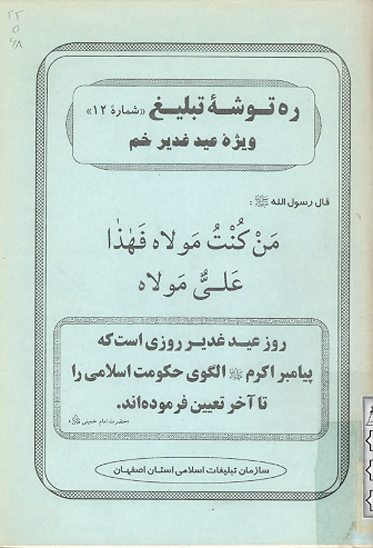 ۲۳
ره توشهٔ تبلیغ «شمارهٔ ۱۲»
ویژهٔ عید غدیر خم
قال رسول الله ﷺ :
مَنْ کُنْتُ مَولاه فَهٰذا
عَلیٌّ مَولاه
روز عید غدیر روزی است که
پیامبر اکرم ﷺ الگوی حکومت اسلامی را
تا آخر تعیین فرموده‌اند.
«حضرت امام خمینی»
سازمان تبلیغات اسلامی استان اصفهان